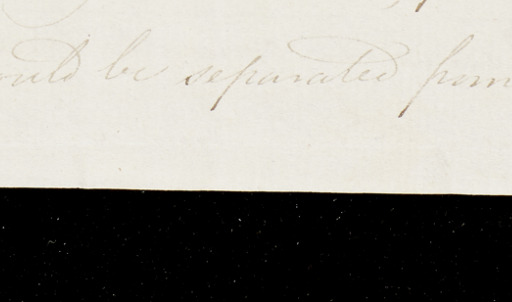 ould be separated from